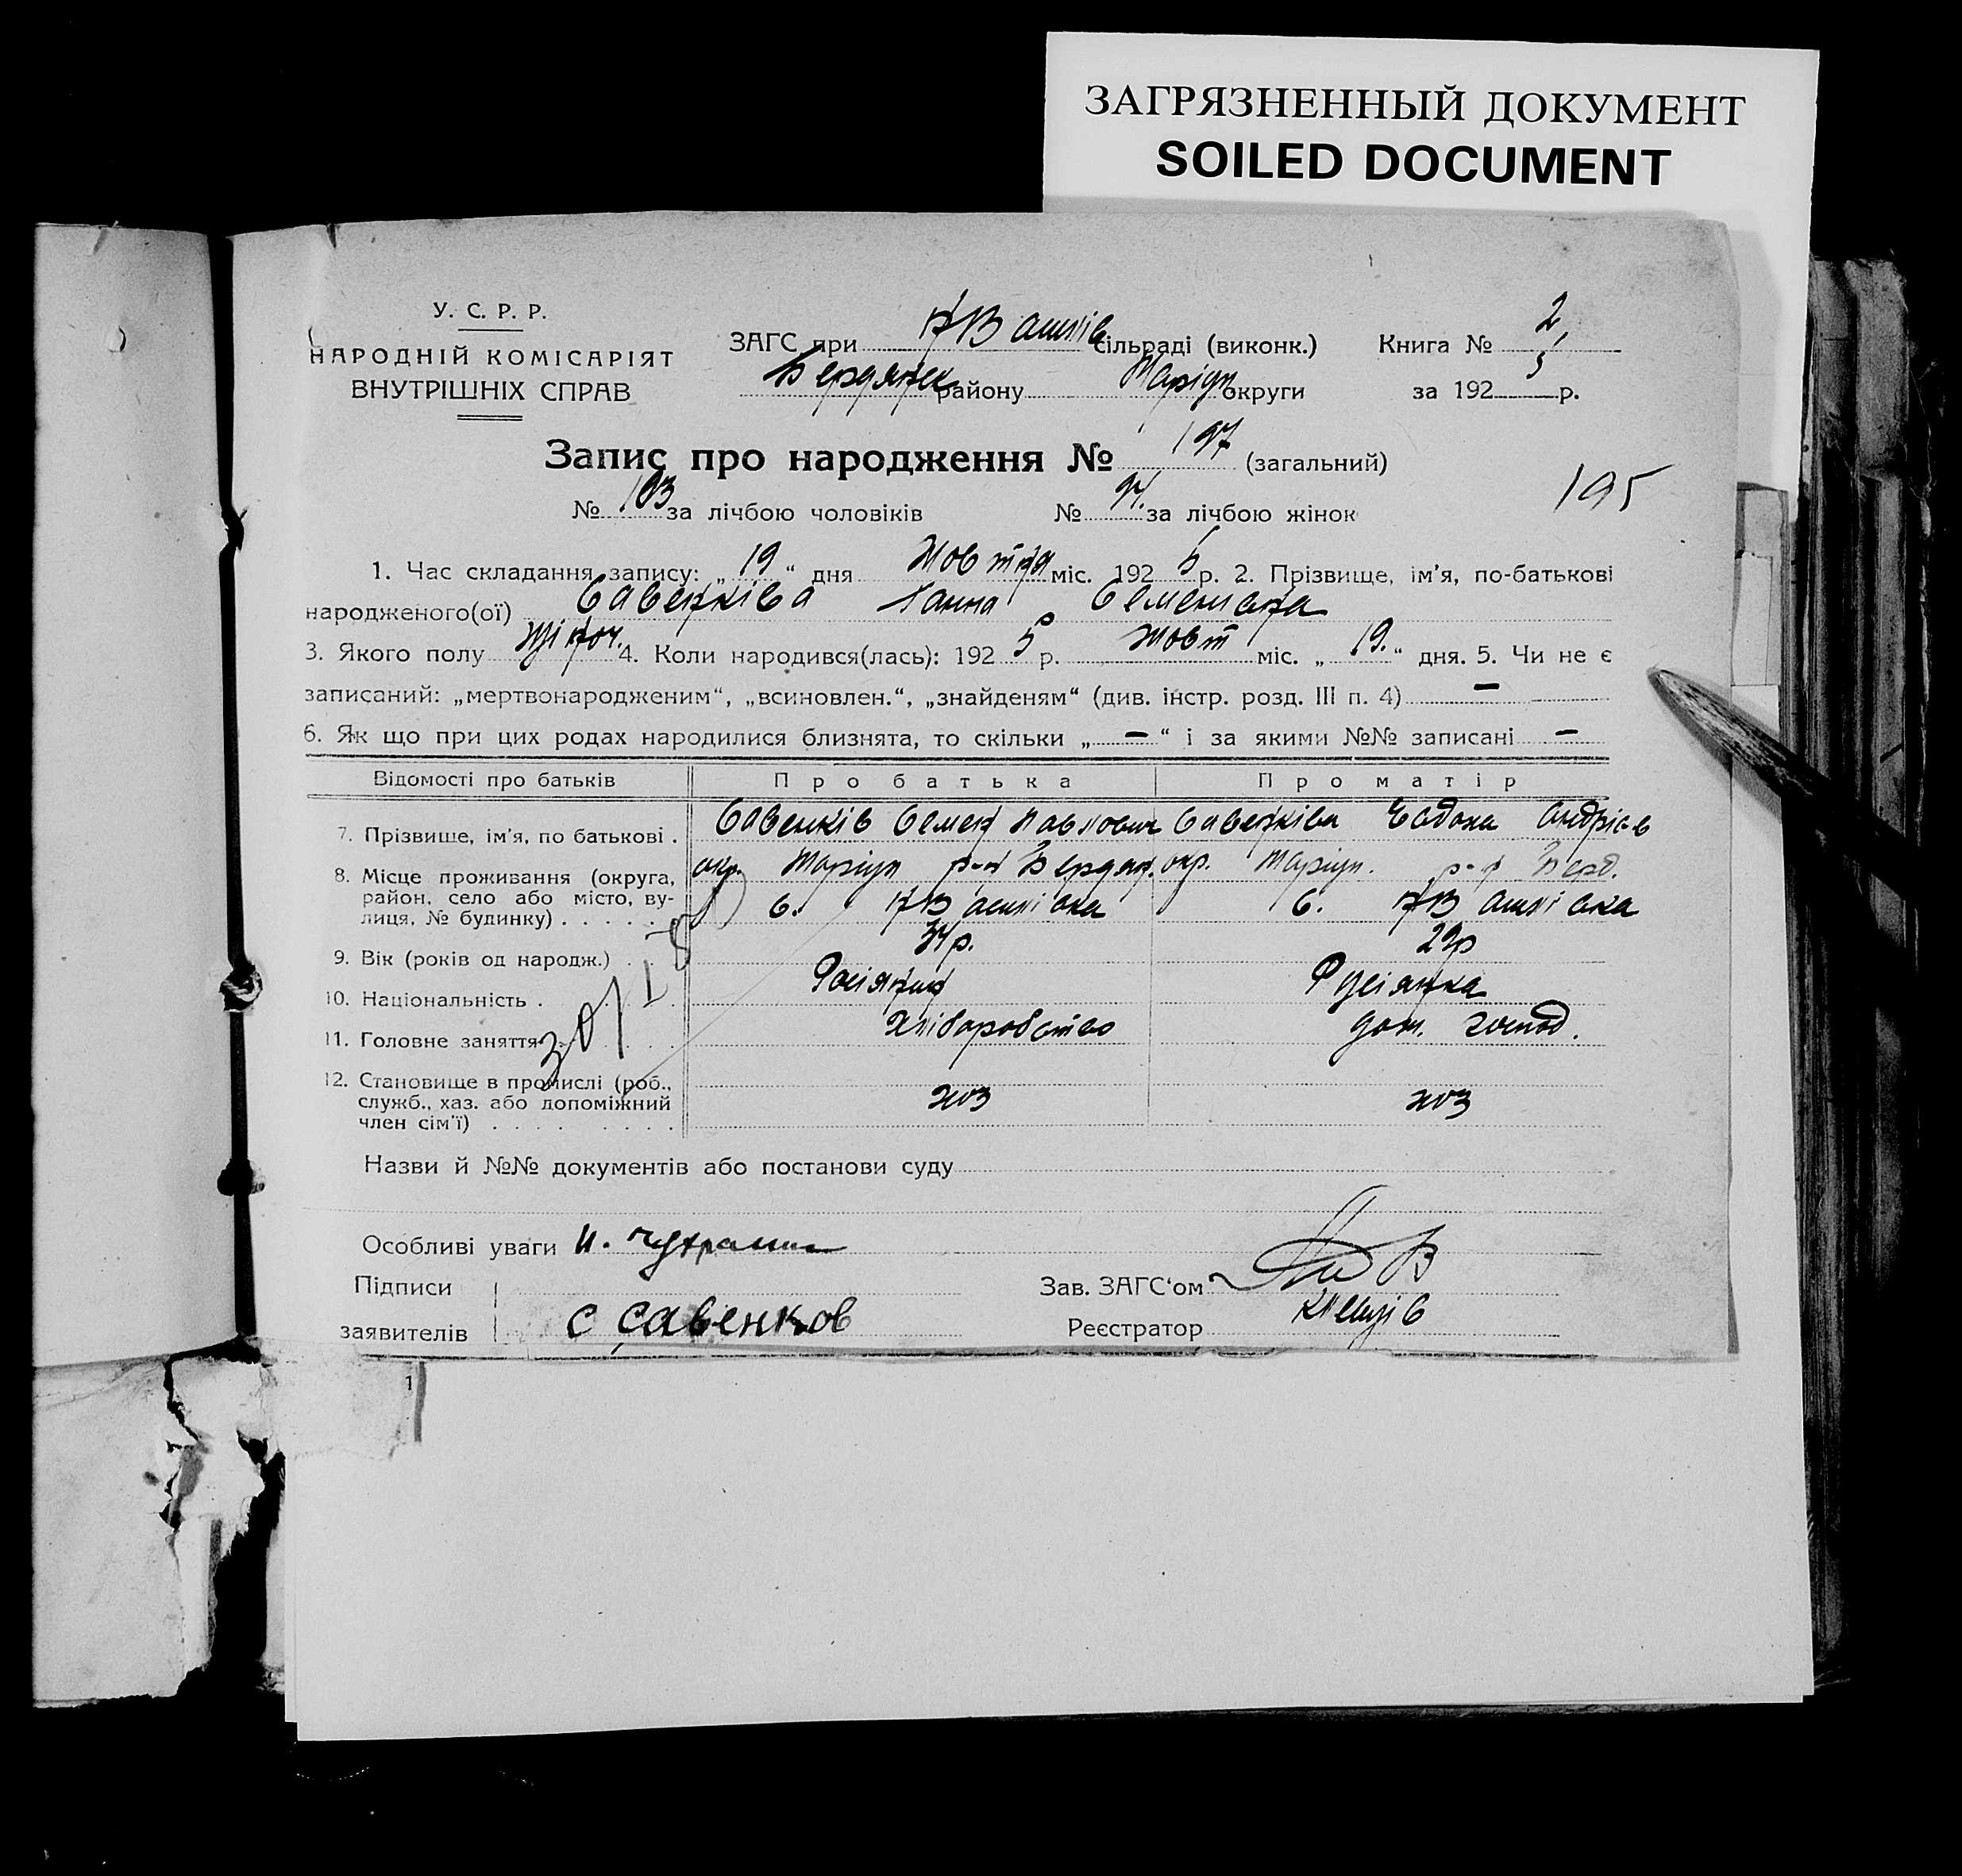 ЗАГРЯЗНЕННЫЙ ДОКУМЕНТ
SOILED DOCUMENT
У. С. Р. Р.
НАРОДНІЙ КОМІСАРІЯТ
ВНУТРІШНІХ СПРАВ
ЗАГС при НВасилів сільраді (виконк.) Книга № 2
Бердянск району Маріуп округи за 1925 р.
Запис про народження № 197 (загальний)
195
№ 103 за лічбою чоловіків № 94. за лічбою жінок
1. Час складання запису: „ 19 “ дня Жовтня міс. 1925 р. 2. Прізвище, ім’я, по-батькові
народженого(ої) Савенківа Ганна Семенівна
3. Якого полу жіноч. 4. Коли народився(лась): 1925 р. жовт міс. „ 19. “ дня. 5. Чи не є
записаний: „мертвонародженим“, „всиновлен.“, „знайденям“ (див. інстр. розд. III п. 4) —
6. Як що при цих родах народилися близнята, то скільки „ — “ і за якими №№ записані —
Відомості про батьків Про батька Про матір
7. Прізвище, ім’я, по батькові . Савенків Семен Павлович Савенківа Євдокія Андріїв
8. Місце проживання (округа, район, село або місто, вулиця, № будинку) окр. Маріуп р-н Бердян. окр. Маріуп. р-н Берд.
с. НВасилівка с. НВасилівка
9. Вік (років од народж.) . 34р. 29р
10. Національність . Росіянин Русіянка
11. Головне заняття Хліборобство дом. господ.
12. Становище в промислі (роб., служб., хаз. або допоміжний член сім’ї) хоз хоз
Назви й №№ документів або постанови суду
Особливі уваги
Підписи Зав. ЗАГС‘ом
заявителів С Савенков Реєстратор
1